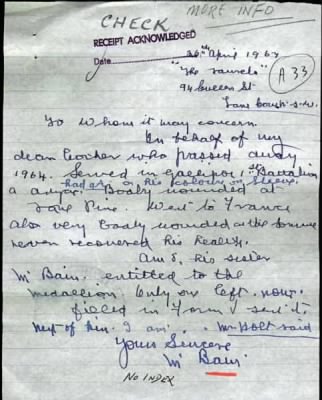 CHECK
MORE INFO
RECEIPT ACKNOWLEDGED
Date
26th April 1967
"The Laurels"
A 33
94 Queen St
To whom it may concern.
In behalf of my
dear brother who passed away
1964. Served in Gallipoli 1st Battalion
had a his colours on sleeve.
a Badly wounded at
Lone Pine. Went to France
also very badly wounded at the Somme
never recovered his health.
Am I, his sister
M Bain. entitled to the
medallion. Only one left. now.
filled in form & sent it.
next of kin. I am. Mr Holt said
Yours Sincere
M Bain
NO INDEX